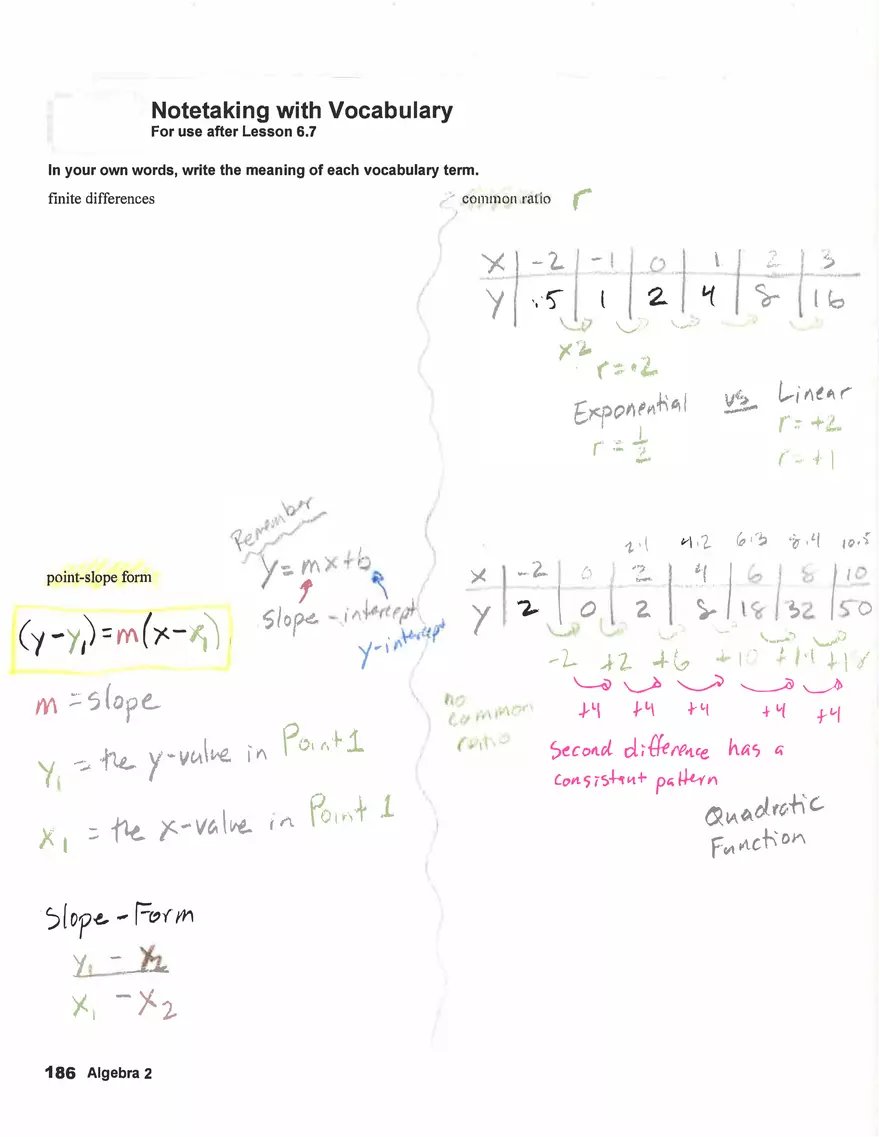 Notetaking with Vocabulary
For use after Lesson 6.7
In your own words, write the meaning of each vocabulary term.
finite differences
common ratio r
X -2 -1 0 1 2 3
Y .5 1 2 4 8 16
x2
r = •2
Exponential vs Linear
r = 1/2
r = +2
r = +1
Remember
y = mx+b
slope-intercept
y-intercept
point-slope form
(y-y₁)=m(x-x₁)
m = slope
y₁ = the y-value in Point 1
x₁ = the x-value in Point 1
Slope-Form
y₁ - y₂
x₁ - x₂
2·1 4·2 6·3 8·4 10·5
X -2 0 2 4 6 8 10
Y 2 0 2 8 18 32 50
-2 +2 +6 +10 +14 +18
+4 +4 +4 +4 +4
no
common
ratio
Second difference has a
consistant pattern
Quadratic
Function
186 Algebra 2